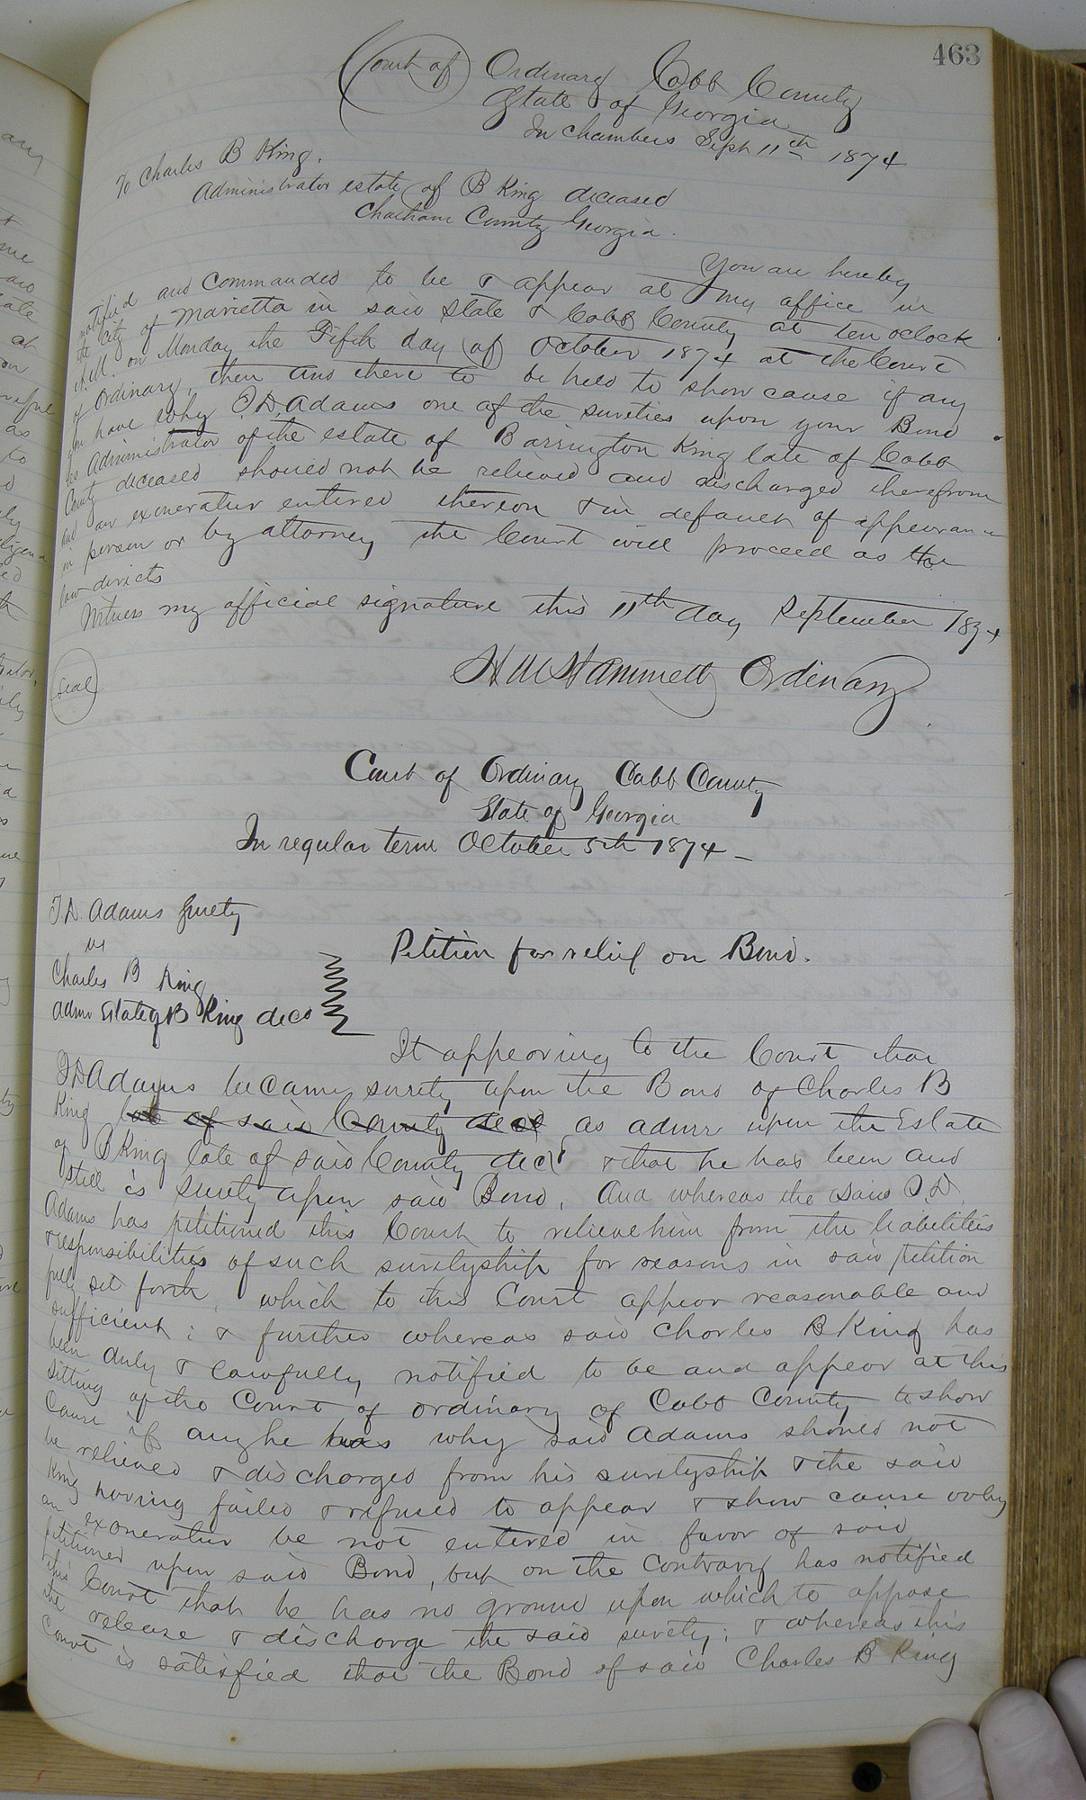 463
Court of Ordinary Cobb County
State of Georgia
In Chambers Sept 11th 1874
To Charles B King.
Administrator estate of B King deceased
Chatham County Georgia.
You are hereby
notified and Commanded to be & appear at my office in
the City of Marietta in said State & Cobb County at ten oclock
A.M. on Monday the Fifth day of October 1874 at the Court
of Ordinary, then and there to be held to show cause if any
you have why T.D. Adams one of the sureties upon your Bond
as Administrator of the estate of Barrington King late of Cobb
County deceased should not be relieved and discharged therefrom
and an exoneratur entered thereon & in default of appearance
in person or by attorney the Court will proceed as the
law directs
Witness my official signature this 11th day September 1874
Seal
H M Hammett Ordinary
Court of Ordinary Cobb County
State of Georgia
In regular term October 5th 1874 -
T.D. Adams Surety
vs
Charles B King
Admr Estate of B King decd
Petition for relief on Bond.
It appearing to the Court that
T D Adams became surety upon the Bond of Charles B
King late of said County decd as admr upon the Estate
of B King late of said County decd & that he has been and
still is Surety upon said Bond. And whereas the said T.D.
Adams has petitioned this Court to relieve him from the liabilities
& responsibilities of such suretyship for reasons in said petition
fully set forth, which to this Court appear reasonable and
sufficient; & further whereas said Charles B King has
been duly & lawfully notified to be and appear at this
sitting of the Court of ordinary of Cobb County to show
Cause if any he has why said Adams should not
be relieved & discharged from his suretyship & the said
King having failed & refused to appear & show cause why
an exoneratur be not entered in favor of said
petitioner upon said Bond, but on the contrary has notified
this Court that he has no ground upon which to oppose
the release & discharge the said surety; & whereas this
Court is satisfied that the Bond of said Charles B King